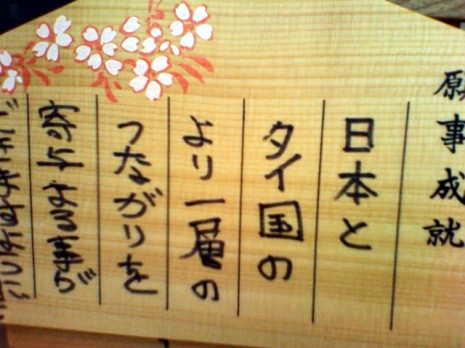 願事成就
日本と
タイ国の
より一層の
つながりを
寄与する事が
できますように